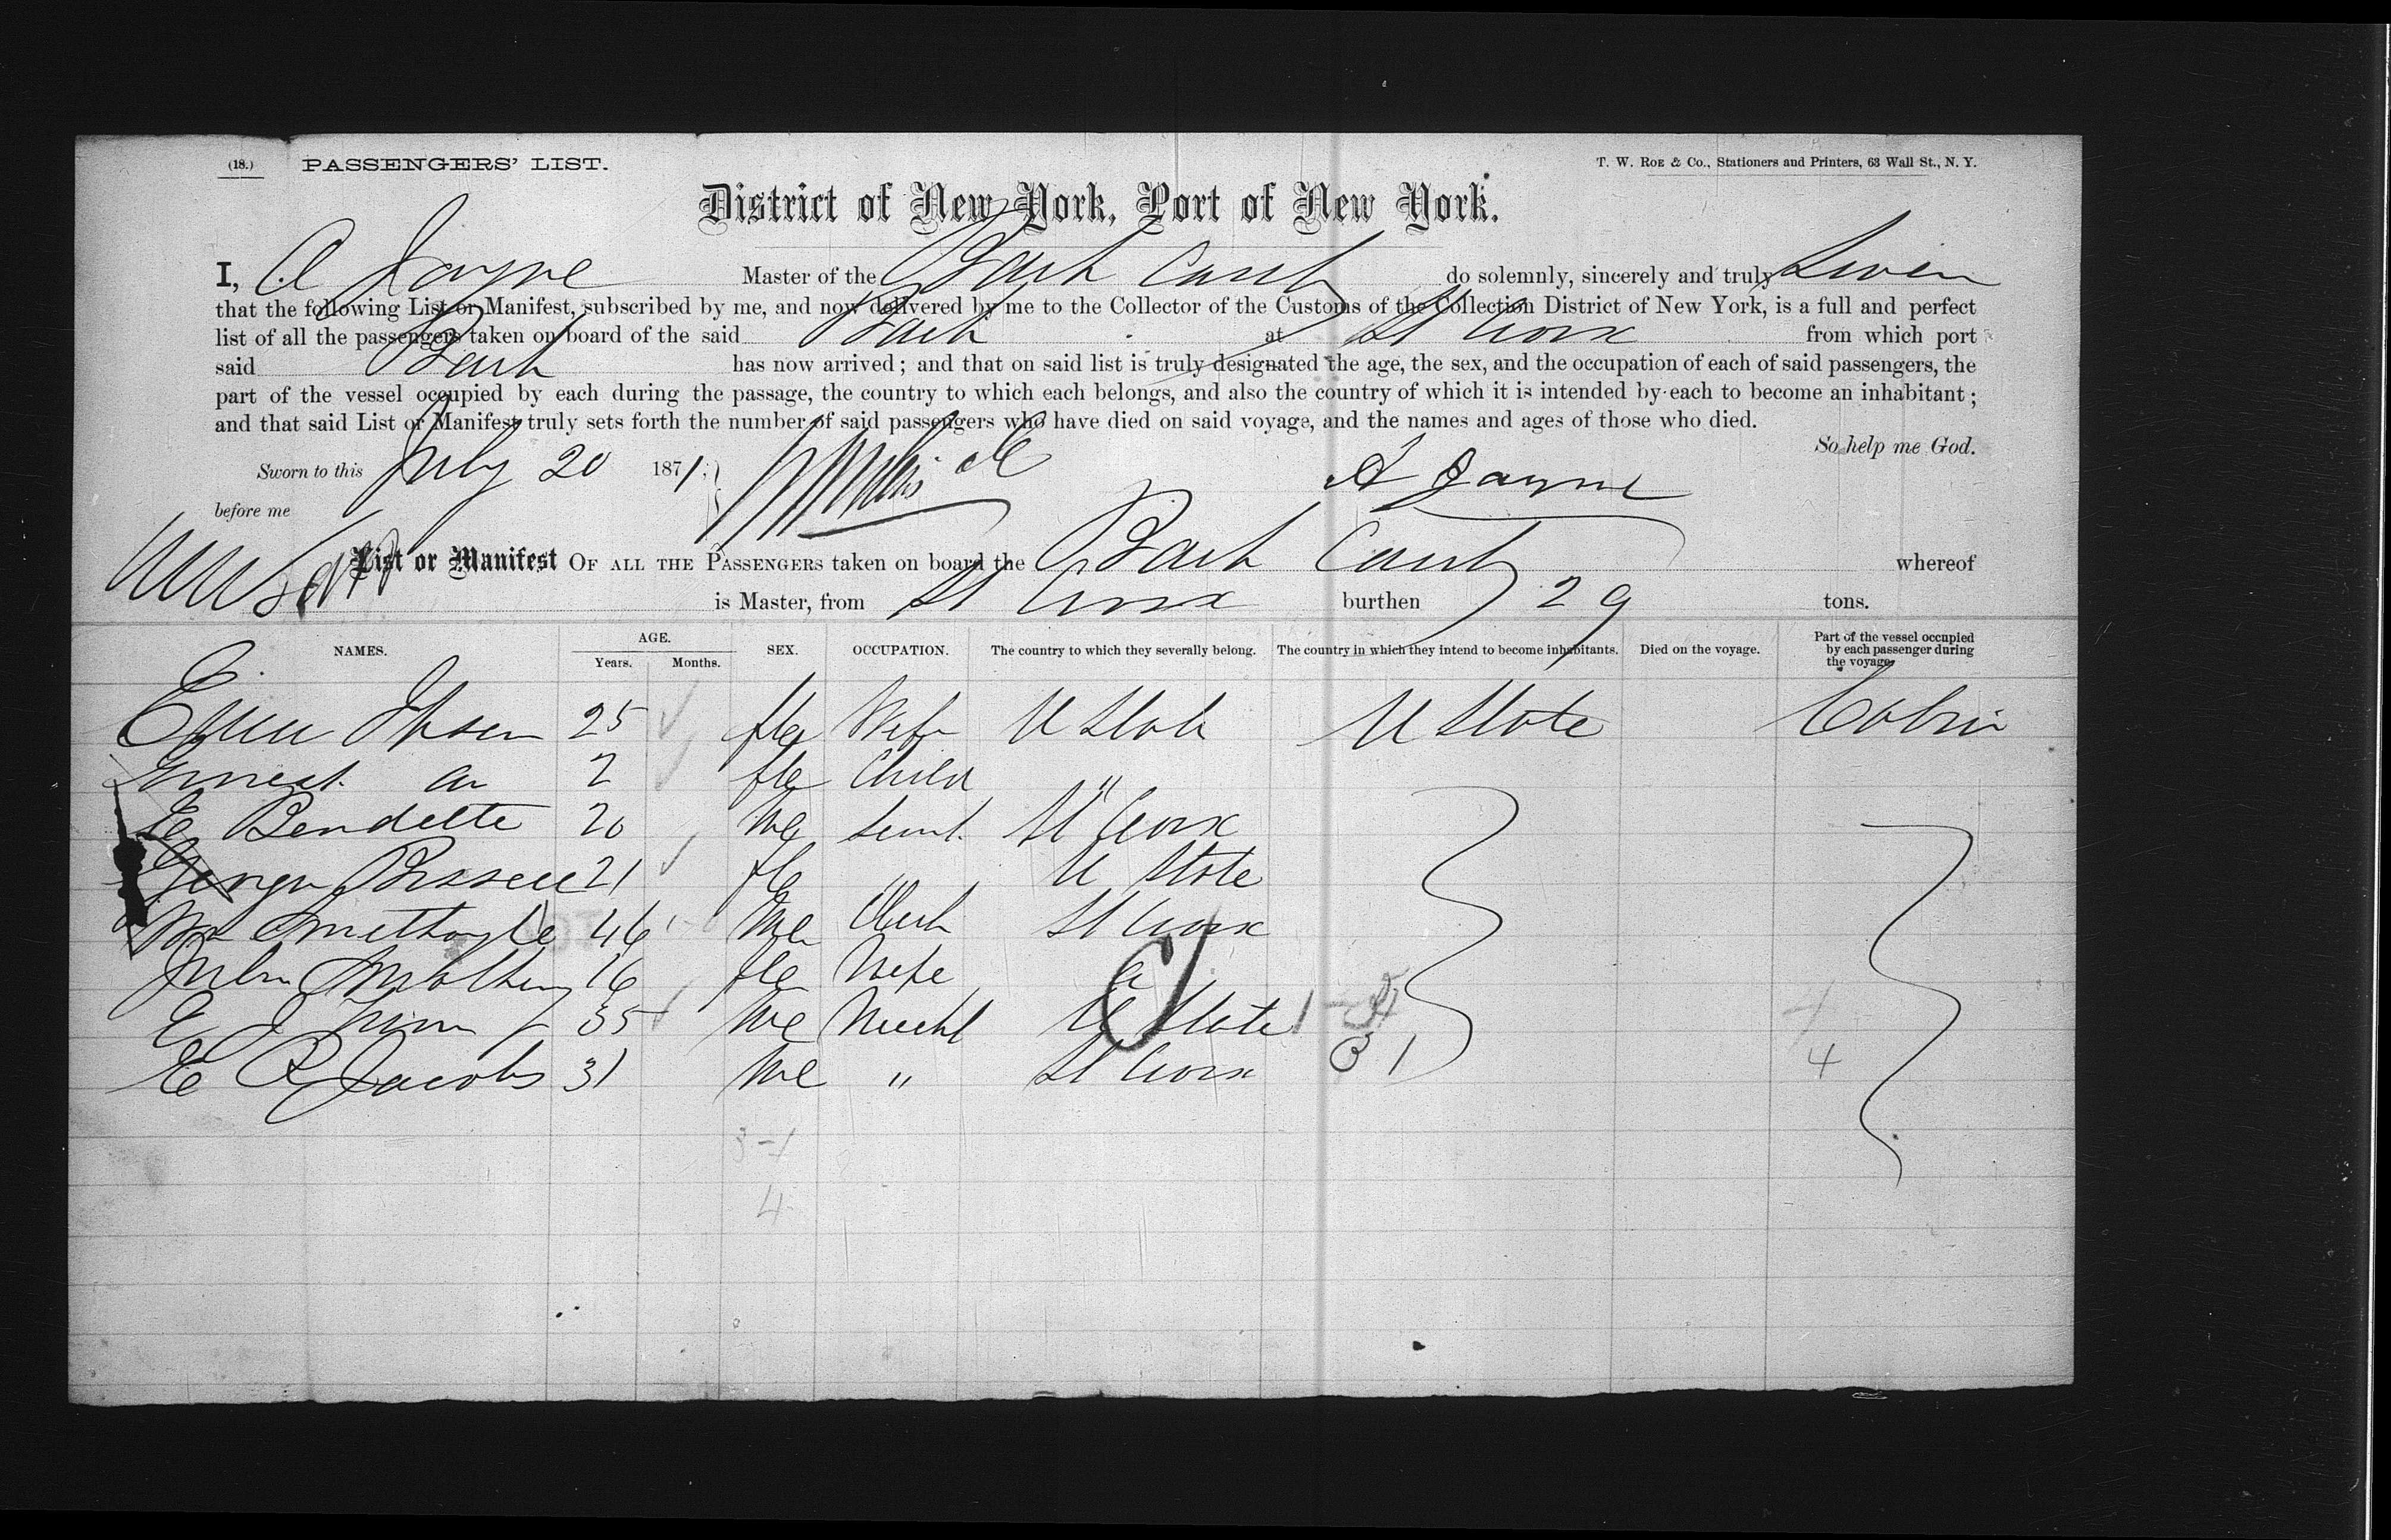 (18.) PASSENGERS' LIST. T. W. ROE & Co., Stationers and Printers, 63 Wall St., N. Y.
District of New York, Port of New York.
I, A Jayne Master of the Bark do solemnly, sincerely and truly Swear
that the following List or Manifest, subscribed by me, and now delivered by me to the Collector of the Customs of the Collection District of New York, is a full and perfect
list of all the passengers taken on board of the said Bark at St Croix from which port
said Bark has now arrived; and that on said list is truly designated the age, the sex, and the occupation of each of said passengers, the
part of the vessel occupied by each during the passage, the country to which each belongs, and also the country of which it is intended by each to become an inhabitant;
and that said List or Manifest truly sets forth the number of said passengers who have died on said voyage, and the names and ages of those who died.
So help me God.
Sworn to this July 20 1871
A Jayne
before me
List or Manifest OF ALL THE PASSENGERS taken on board the Bark whereof
is Master, from St Croix burthen 29 tons.
NAMES. AGE. Years. Months. SEX. OCCUPATION. The country to which they severally belong. The country in which they intend to become inhabitants. Died on the voyage. Part of the vessel occupied by each passenger during the voyage.
25 fle Wife U State U State Cabin
Ernest 2 fle Child "
E Bendette 20 Me Servt St Croix
21 fle " U State
Wm 46 Me Clerk St Croix
16 fle Wife
E J 35 Me Mercht U State 1
E R Jacobs 31 Me " St Croix 3 1 4
3-1
4